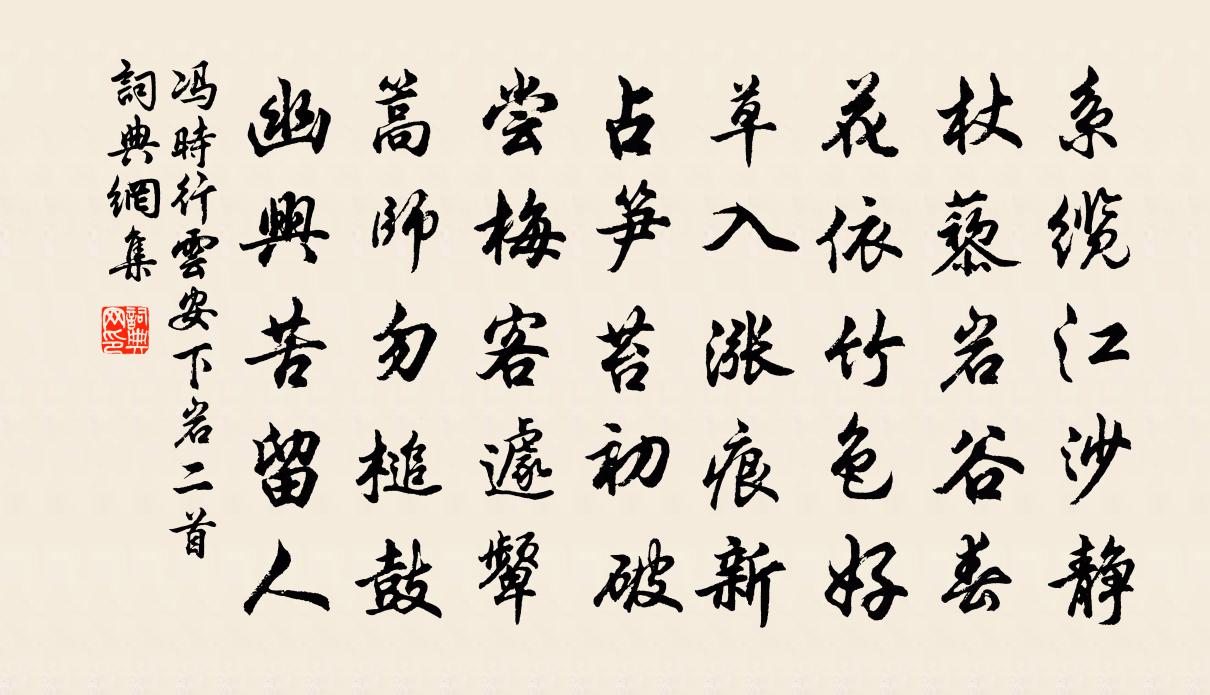 系缆江沙静
杖藜岩谷春
花依竹色好
草入涨痕新
占笋苔初破
尝梅客遽颦
篙师勿槌鼓
幽興苦留人
冯時行雲安下岩二首
詞典網集
詞典网印